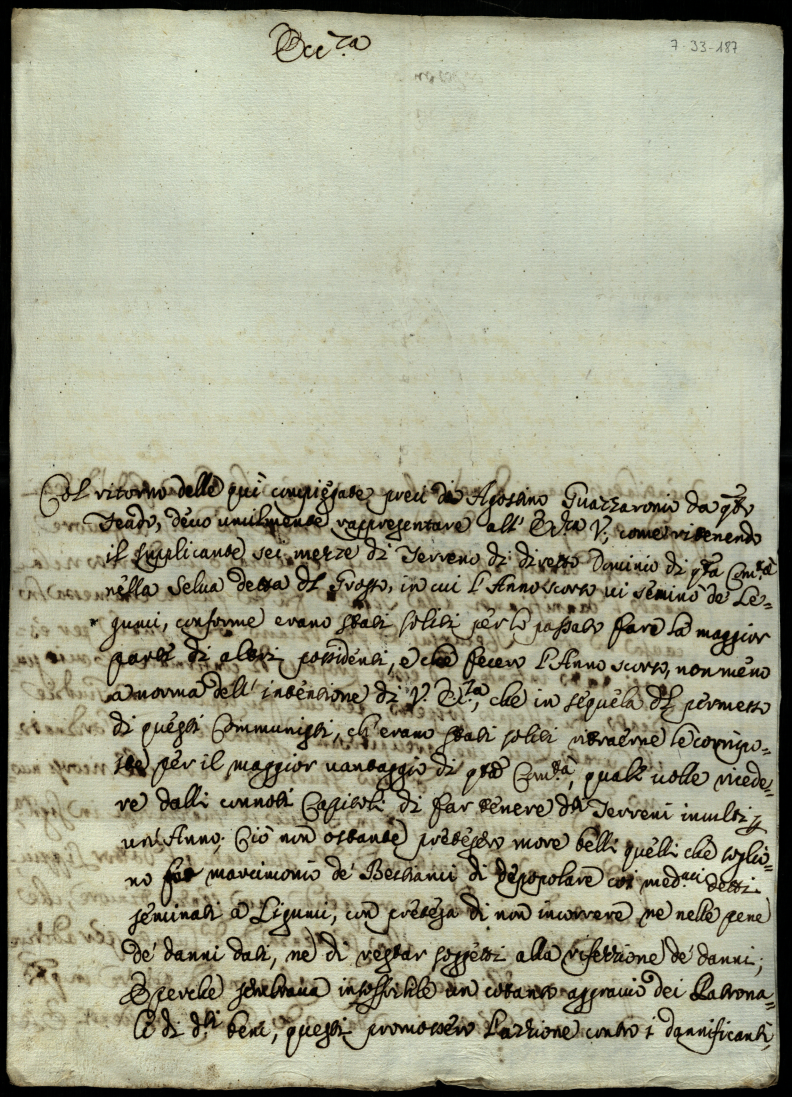 Ecc.za
7-33-187
Col ritorno delle qui compiegate preci di Agostino Guazzaroni da q.to
Stato, devo umilmente rappresentare all' Ecc.za V., come ritenendo
il supplicante sei merze di Terreno di diretto Dominio di q.ta Com.tà
nella Selva detta del Grosso, in cui l'Anno scorso vi seminò de Le=
gumi, conforme erano stati soliti per lo passato fare la maggior
parte di altri possidenti, e che fecero l'Anno scorso, non meno
a norma dell' intenzione di V. Ecc.za, che in sequela del permesso
di questi Communisti, ch'erano stati soliti ritraerne le corrispo=
ste per il maggior vantaggio di q.ta Com.tà, quali volle recede=
re dalli connoti Capitoli di far tenere d.ti Terreni inculti p
un' Anno. Ciò non ostante pretesero more belli quelli che soglio=
no far marcimonio de' Bestiami di depopolare così med.mi detti
seminati a Ligumi, con pretesa di non incorrere ne nelle pene
de' danni dati, ne di restar soggetti alla rifezzione de' danni;
E perche sembrava insoffribile un cotanto aggravio dei Padrona=
li di d.ti beni, questi promossero l'azzione contro i dannificanti,